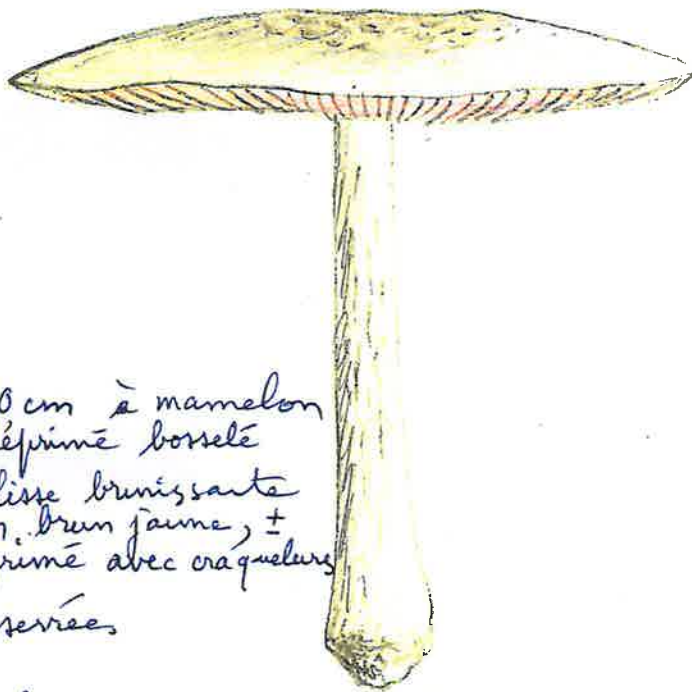 0 cm à mamelon
éprimé bosselé
lisse brunissante
brun jaune, ±
rimé avec craquelures
serrées